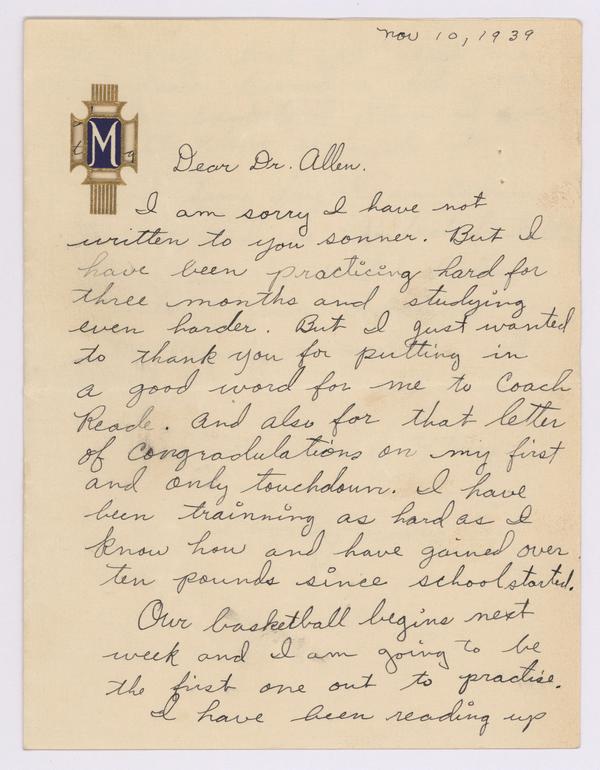 Nov 10, 1939
M
Dear Dr. Allen.
I am sorry I have not
written to you sonner. But I
have been practicing hard for
three months and studying
even harder. But I just wanted
to thank you for putting in
a good word for me to Coach
Reade. And also for that letter
of congradulations on my first
and only touchdown. I have
been trainning as hard as I
know how and have gained over
ten pounds since school started.
Our basketball begins next
week and I am going to be
the first one out to practise.
I have been reading up